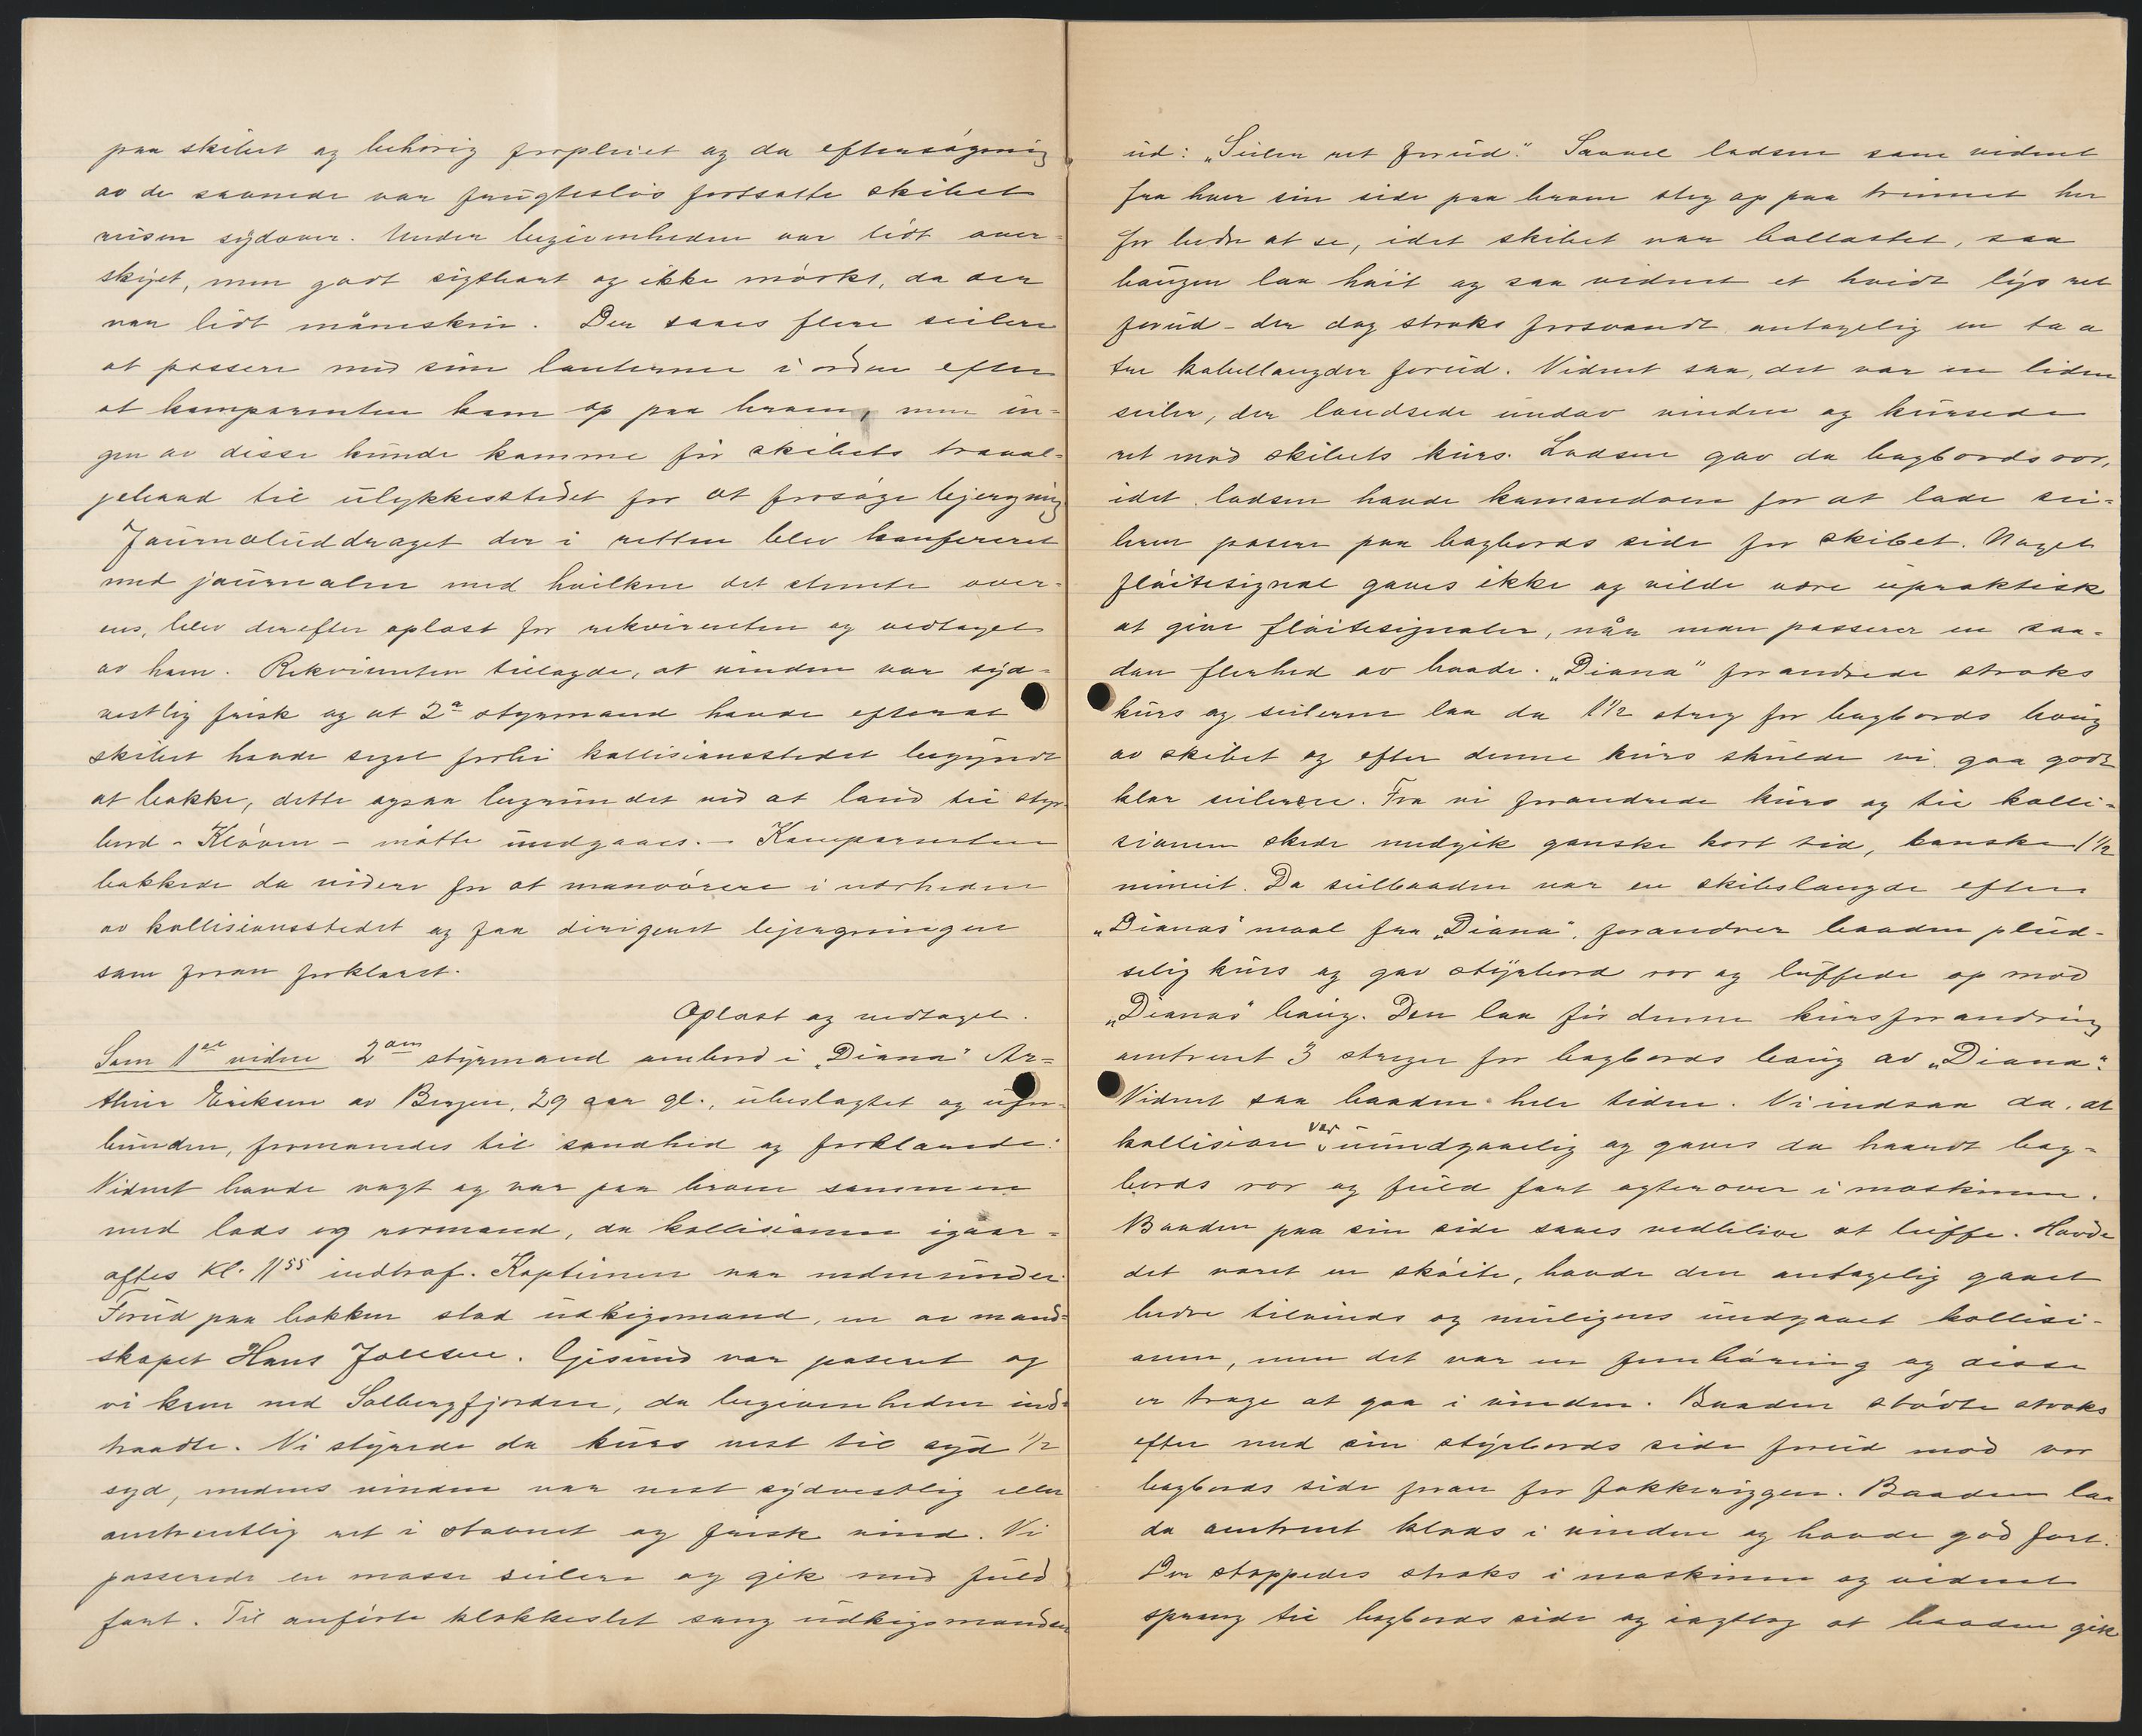 paa skibet og behørig forpleiet og da eftersøgning
av de savnede var frugtesløs fortsatte skibet
reisen sydover. Under begivenheden var lidt over-
skyet, men godt sigtbart og ikke mørkt, da der
var lidt måneskin. Der saaes flere seilere
at passere med sine lanterner i orden efter
at komparenten kom op paa broen, men in-
gen av disse kunde komme før skibets traval-
jebaad til ulykkesstedet for at forsøge bjergning
Journaluddraget der i retten blev konfereret
med journalen med hvilken det stemte over-
ens, blev derefter oplæst for rekvirenten og vedtaget
av ham. Rekvirenten tillagde, at vinden var syd-
vestlig frisk og at 2a styrmand havde efterat
skibet havde seget forbi kollisionsstedet begyndt
at bakke, dette ogsaa begrundet ved at land til styr-
bord - Kløven - måtte undgaaes. - Komparenten
bakkede da videre for at manøvrere i nærheden
av kollisionsstedet og faa dirigeret bjergningen
som foran forklaret.
Oplæst og vedtaget.
Som 1ste vidne 2den styrmand ombord i „Diana" Ar-
thur Eriksen av Bergen, 29 aar gl., ubeslægtet og ufor-
bunden, formanedes til sandhed og forklarede:
Vidnet havde vagt og var paa broen sammen
med lods og rormand, da kollisionen igaar-
aftes kl. 1155 indtraf. Kapteinen var nedenunder.
Forud paa bakken stod udkigsmand, en av mand-
skapet Hans Jollsen. Gisund var passeret og
vi kom ned Solbergfjorden, da begivenheden ind-
traadte. Vi styrede da kurs vest til syd 1/2
syd, medens vinden var vest sydvestlig eller
omtrentlig ret i stavnet og frisk vind. Vi
passerede en masse seilere og gik med fuld
fart. Til anførte klokkeslet sang udkigsmanden
ud: „Seiler ret forud." Saavel lodsen som vidnet
fra hver sin side paa broen steg op paa trinnet her
for bedre at se, idet skibet var ballastet, saa
baugen laa høit og saa vidnet et hvidt lys ret
forud - der dog straks forsvandt antagelig en to a
tre kabellængder forud. Vidnet saa, det var en liden
seiler, der lændsede undav vinden og kursede
ret mod skibets kurs. Lodsen gav da bagbords ror,
idet lodsen havde kommandoen for at lade sei-
leren passere paa bagbords side for skibet. Noget
fløitesignal gaves ikke og vilde være upraktisk
at give fløitesignaler, når man passerer en saa-
dan flerhed av baade. „Diana" forandrede straks
kurs og seileren laa da 1 1/2 streg for bagbords baug
av skibet og efter denne kurs skulde vi gaa godt
klar seileren. Fra vi forandrede kurs og til kolli-
sionen skede medgik ganske kort tid, kanske 1 1/2
minut. Da seilbaaden var en skibslængde efter
„Dianas" maal fra „Diana", forandrer baaden plud-
selig kurs og gav styrbord ror og luffede op mod
„Dianas" baug. Den laa før denne kursforandring
omtrent 3 streger for bagbords baug av „Diana".
Vidnet saa baaden hele tiden. Vi indsaa da, at
kollision var uundgaaelig og gaves da haardt bag-
bords ror og fuld fart agterover i maskinen.
Baaden paa sin side saaes vedblive at luffe. Havde
det været en skøite, havde den antagelig gaaet
bedre tilvinds og muligens undgaaet kollisi-
onen, men det var en fembøring og disse
er træge at gaa i vinden. Baaden stødte straks
efter med sin styrbords side forud mod vor
bagbords side foran for fokkeriggen. Baaden laa
da omtrent klods i vinden og havde god fart.
Der stoppedes straks i maskinen og vidnet
sprang til bagbords side og iagttog at baaden gik